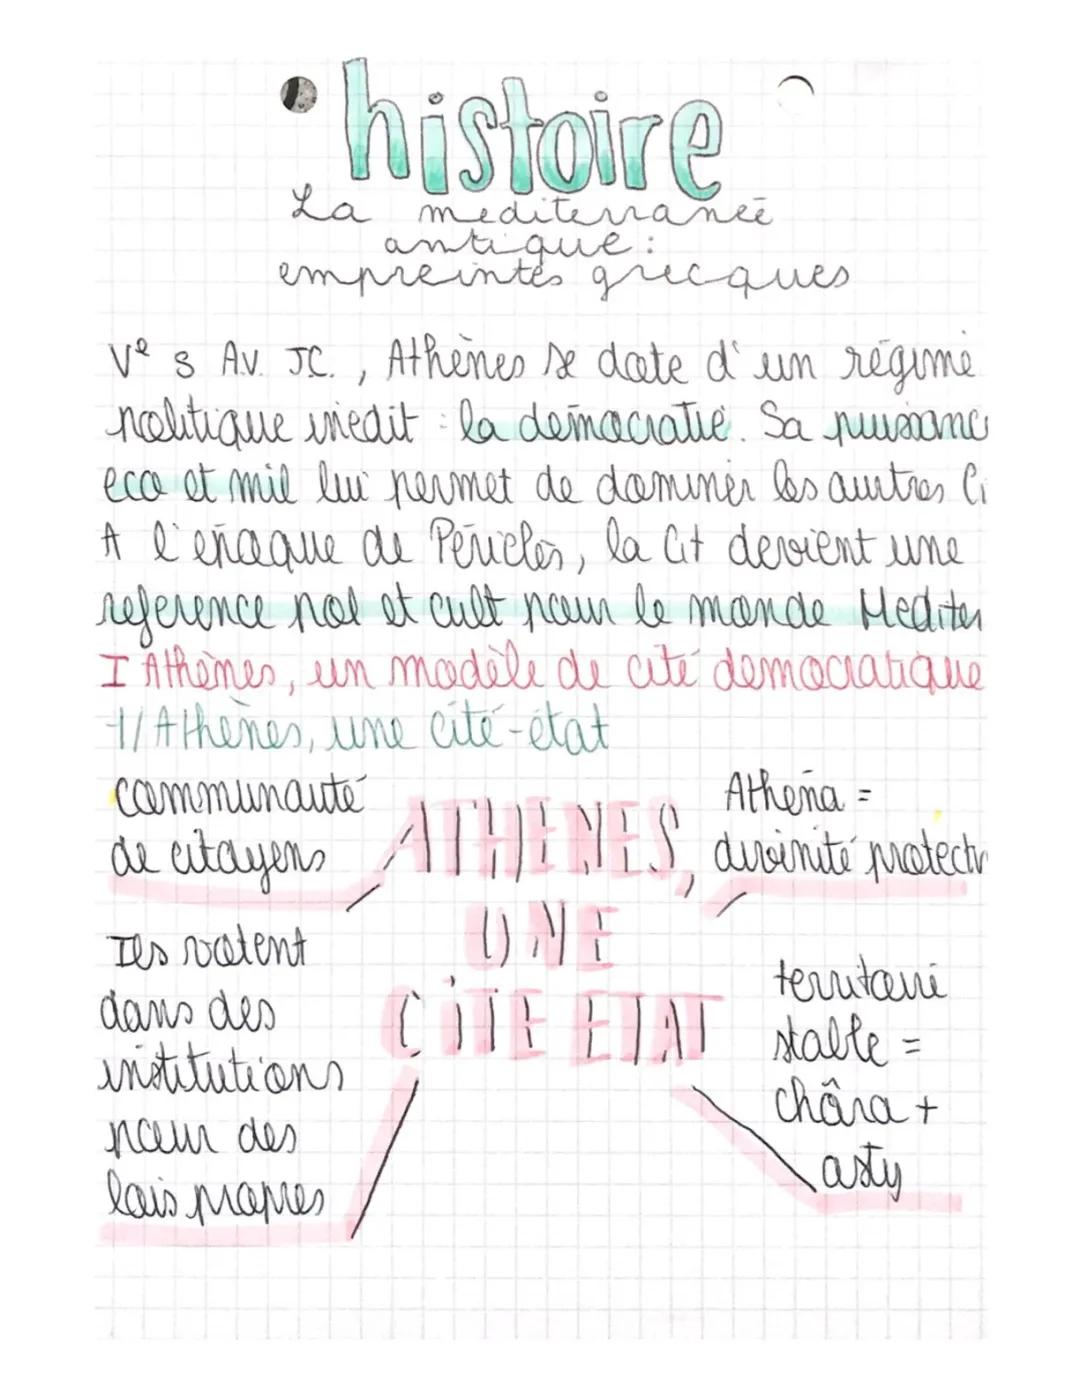 histoire
La mediterranéé
antique:
empreintes grecques
Ve s Av. J.C., Athènes se dote d'un régime
politique inédit : la démocratie. Sa puissanc
eco et mil lui permet de dominer les autres Ci
A l'époque de Périclès, la Cit devient une
reference pol et cult pour le monde Mediter
I Athènes, un modèle de cité democratique
1/ Athènes, une cité-état
communauté
de citoyens
ATHENES,
UNE
CITE ETAT
Athéna =
divinité protectr
Ils votent
dans des
institutions
pour des
lois propres
territoire
stable =
chôra +
asty